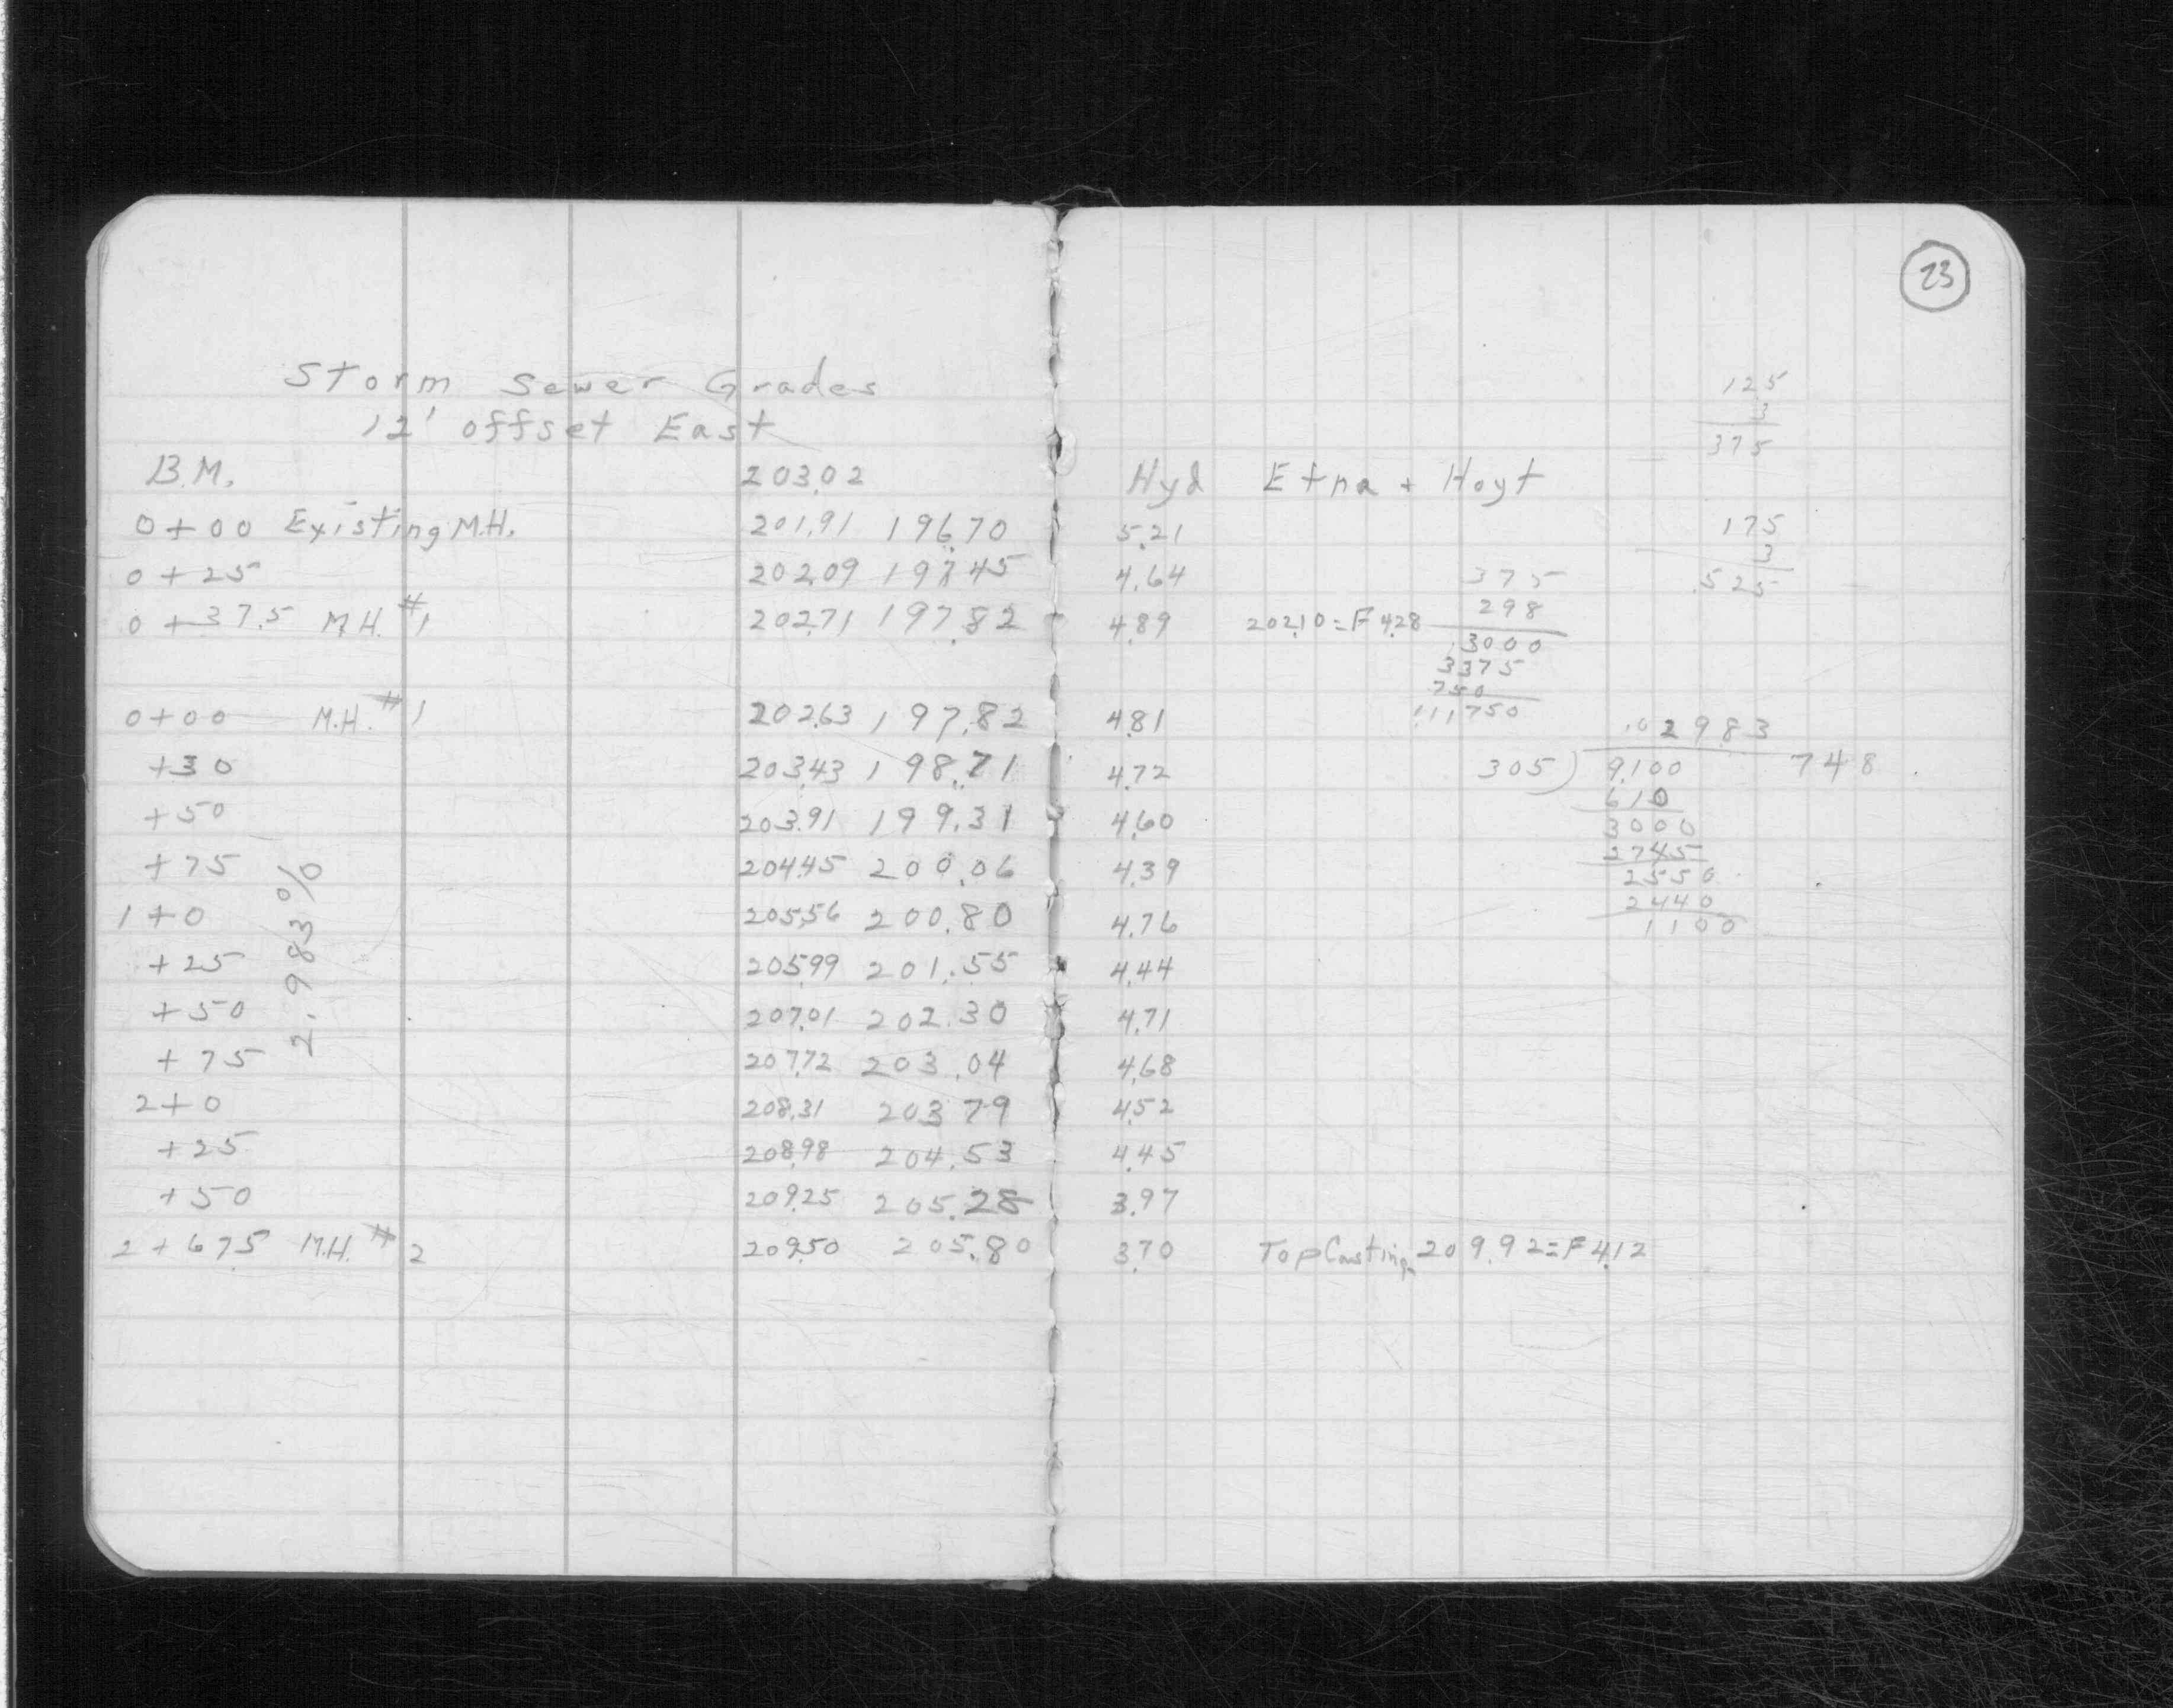 23
Storm Sewer Grades
12' offset East
B.M. 203.02 Hyd Etna + Hoyt
0+00 Existing M.H. 201.91 196.70 5.21
0+25 202.09 197.45 4.64
0+37.5 M.H. #1 202.71 197.82 4.89 202.10 = F 4.28
0+00 M.H. #1 202.63 197.82 4.81
+30 203.43 198.71 4.72
+50 203.91 199.31 4.60
+75 204.45 200.06 4.39
1+0 205.56 200.80 4.76
+25 205.99 201.55 4.44
+50 207.01 202.30 4.71
+75 207.72 203.04 4.68
2+0 208.31 203.79 4.52
+25 208.98 204.53 4.45
+50 209.25 205.28 3.97
2+67.5 M.H. #2 209.50 205.80 3.70 Top Casting 209.92 = F 4.12
2.983%
125
3
375
175
3
.525
375
298
3000
3375
750
111750
.02983
305 ) 9.100 748
610
3000
2745
2550
2440
1100